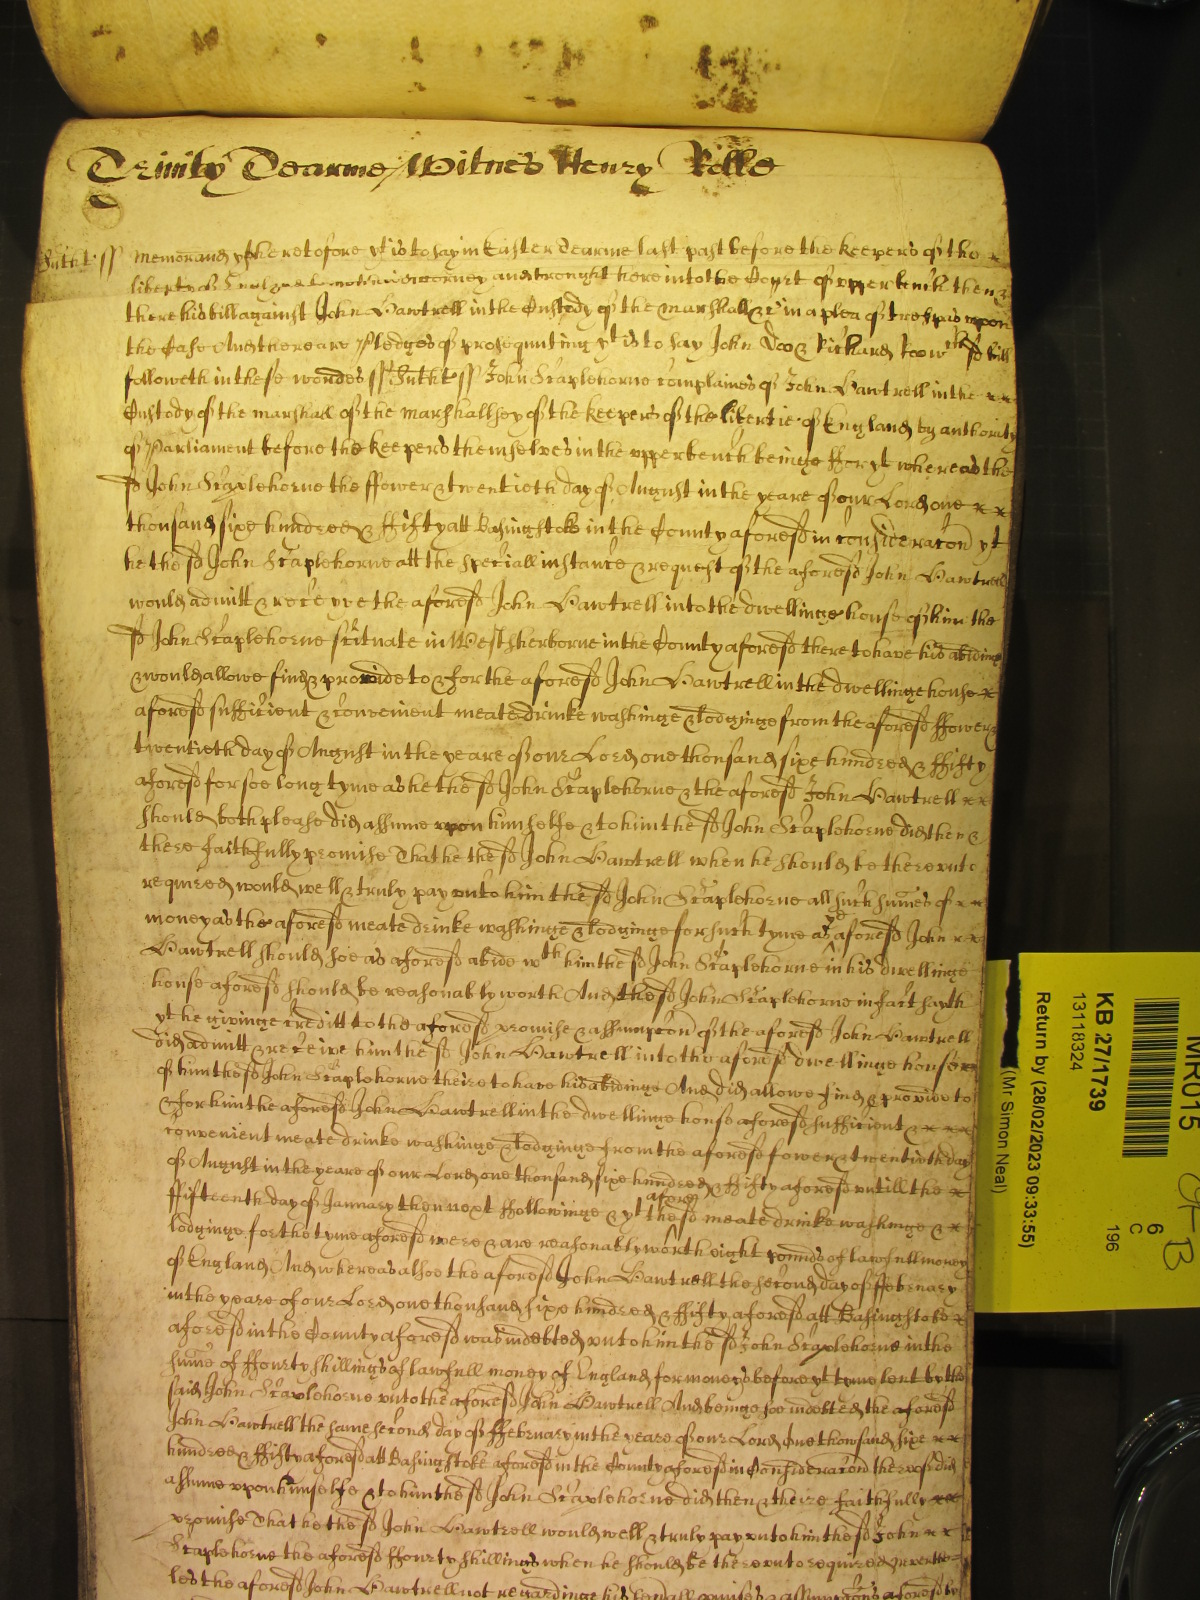 Trinity Tearme Witnes Henry Rolle
Suth't ss Memorand yt heretofore yt is to say in Easter Tearme last past before the keepers of the
liberty of Attorney and brought here into the Court of upper bench then &
there his bill against John Hawtrell in the Custody of the Marshall &c in a plea of trespas upon
the Case And there are Pledges of prosequuting yt is to say John Doo & Richard Roo wch sd bill
followeth in these wordes ss Suth't ss John Staplehorne complaines of John Hawtrell in the
Custody of the marshall of the marshallsey of the keepers of the libertie of England by authority
of Parliament before the keepers themselves in the upper bench beinge ffor yt whereas the
sd John Staplehorne the ffower & twentieth day of August in the yeare of our Lord one
thousand sixe hundred & ffifty att Basingstoke in the County aforesd in consideracon yt
he the sd John Staplehorne att the speciall instance & request of the aforesd John Hawtrell
would admitt & receyve the aforesd John Hawtrell into the dwellinge house of him the
sd John Staplehorne scituate in West sherborne in the County aforesd there to have his abidinge
& would allowe find & provide to & for the aforesd John Hawtrell in the dwellinge house
aforesd sufficient & convenient meate drinke washinge & lodginge from the aforesd ffower &
twentieth day of August in the yeare of our Lord one thousand sixe hundred & ffifty
aforesd for soe long tyme as he the sd John Staplehorne & the aforesd John Hawtrell
should both please did assume upon himselfe & to him the sd John Staplehorne did then &
there faithfully promise That he the sd John Hawtrell when he should be thereunto
required would well & truly pay unto him the sd John Staplehorne all such sumes of
money as the aforesd meate drinke washinge & lodginge for such tyme as ye aforesd John
Hawtrell should soe as aforesd abide wth him the sd John Staplehorne in his dwellinge
house aforesd should be reasonably worth And the sd John Staplehorne in fact sayth
yt he givinge creditt to the aforesd promise & assumpcon of the aforesd John Hawtrell
did admitt & receive him the sd John Hawtrell into the aforesd dwellinge house
of him the sd John Staplehorne there to have his abidinge And did allowe find & provide to
& for him the aforesd John Hawtrell in the dwellinge house aforesd sufficient &
convenient meate drinke washinge & lodginge from the aforesd fower & twentieth day
of August in the yeare of our Lord one thousand sixe hundred & ffifty aforesd untill the
ffifteenth day of January then next ffollowinge & yt the aforesd meate drinke washinge &
lodginge for the tyme aforesd were & are reasonably worth eight pounds of lawfull money
of England And whereas alsoe the aforesd John Hawtrell the second day of ffebruary
in the yeare of our Lord one thousand sixe hundred & ffifty aforesd att Basingstoke
aforesd in the County aforesd was indebted unto him the sd John Staplehorne in the
sume of ffourty shillings of lawfull money of England for moneys before yt tyme lent by the
said John Staplehorne unto the aforesd John Hawtrell And beinge soe indebted the aforesd
John Hawtrell the same second day of ffebruary in the yeare of our Lord one thowsand sixe
hundred & ffifty aforesd att Basingstoke aforesd in the County aforesd in Consideracon thereof did
assume upon himselfe & to him the sd John Staplehorne did then & there faithfully
promise That he the sd John Hawtrell would well & truly pay unto him the sd John
Staplehorne the aforesd ffourty shillings when he should be thereunto required neverthe-
les the aforesd John Hawtrell not regardinge his severall promises & assumpcons aforesd by
MR015
KB 27/1739
13118324
6
C
196
Return by (28/02/2023 09:33:55)
(Mr Simon Neal)